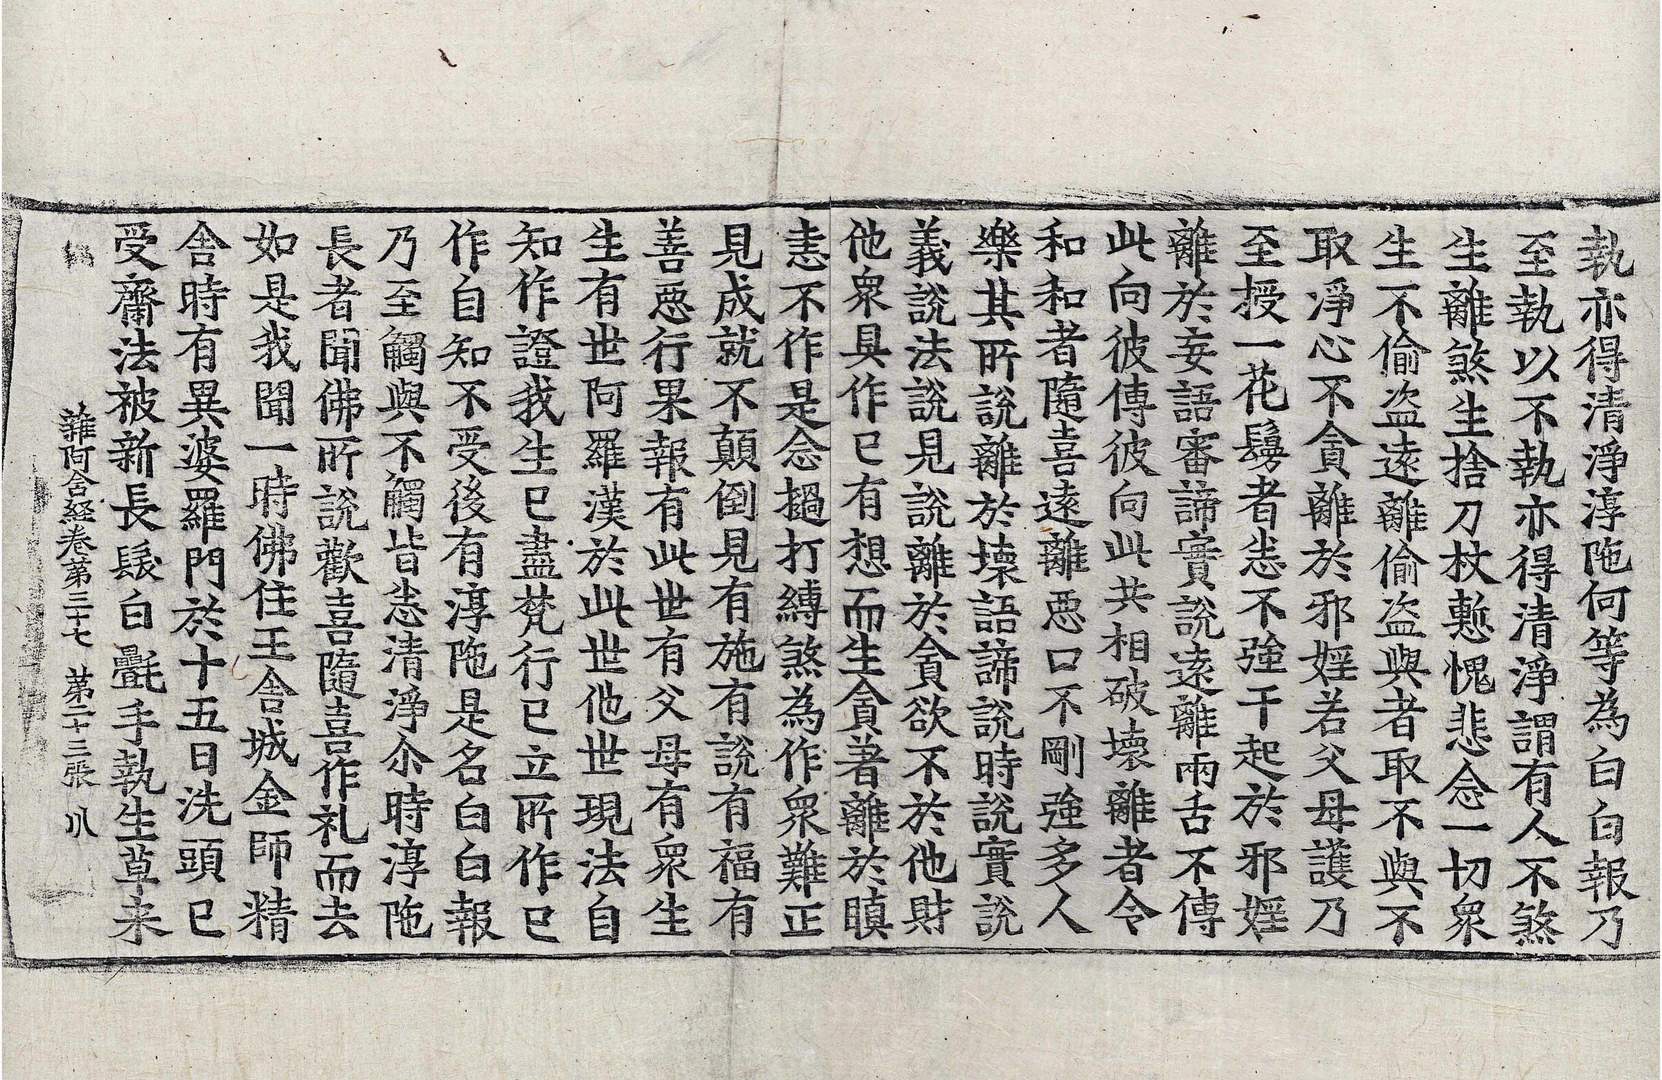 執亦得清淨淳陁何等為白白報乃
至執以不執亦得清淨謂有人不煞
生離煞生捨刀杖慙愧悲念一切衆
生不偷盗遠離偷盗與者取不與不
取淨心不貪離於邪婬若父母護乃
至授一花鬘者悉不強干起於邪婬
離於妄語審諦實說遠離兩舌不傳
此向彼傳彼向此共相破壞離者令
和和者隨喜遠離惡口不剛強多人
樂其所說離於壞語諦說時說實說
義說法說見說離於貪欲不於他財
他衆具作已有想而生貪著離於瞋
恚不作是念撾打縛煞為作衆難正
見成就不顛倒見有施有說有福有
善惡行果報有此世有父母有衆生
生有世阿羅漢於此世他世現法自
知作證我生已盡梵行已立所作已
作自知不受後有淳陁是名白白報
乃至觸與不觸皆悉清淨尒時淳陁
長者聞佛所說歡喜隨喜作礼而去
如是我聞一時佛住王舍城金師精
舍時有異婆羅門於十五日洗頭已
受齋法被新長髮白㲲手執生草来
雜阿含經卷第三十七 第二十三張